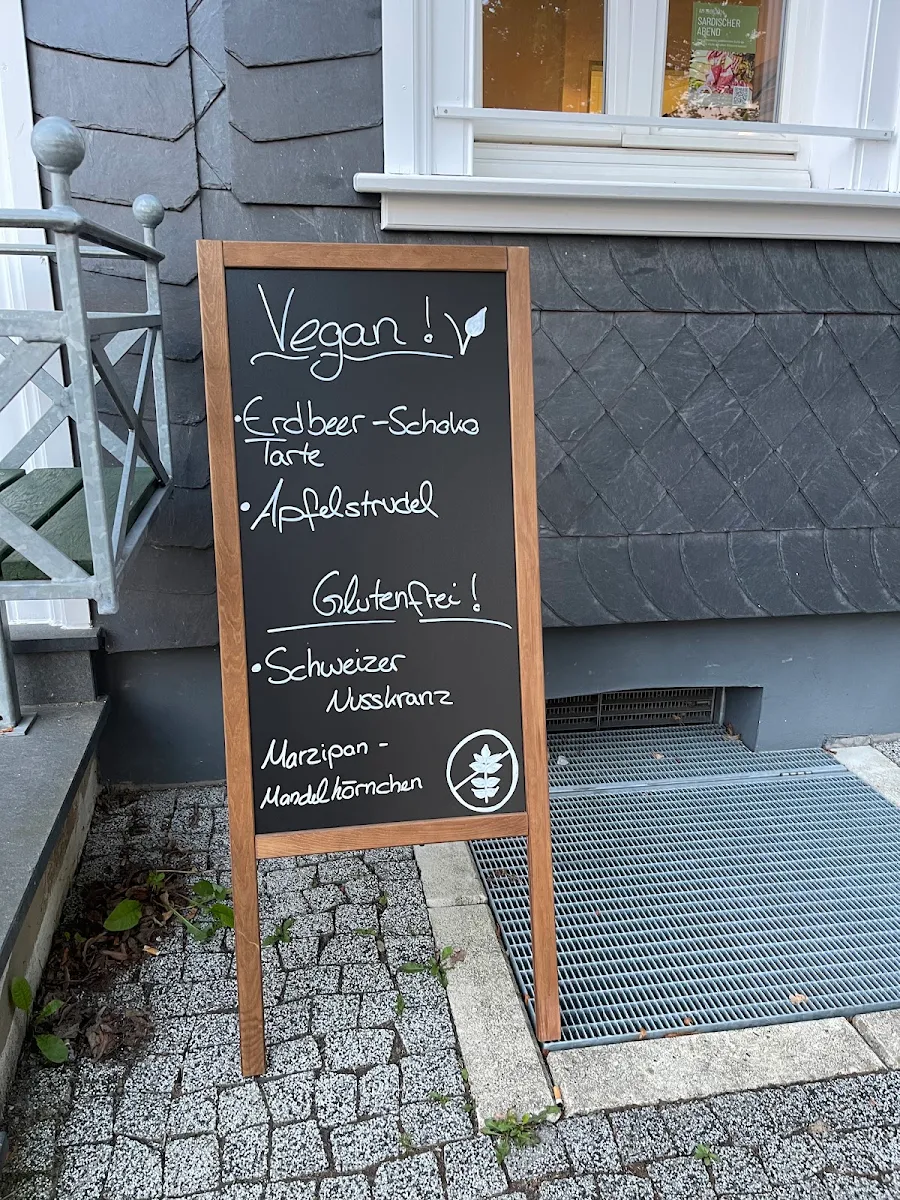 SARDISCHER
ABEND
Vegan!
• Erdbeer-Schoko
Tarte
• Apfelstrudel
Glutenfrei!
• Schweizer
Nusskranz
Marzipan-
Mandelhörnchen